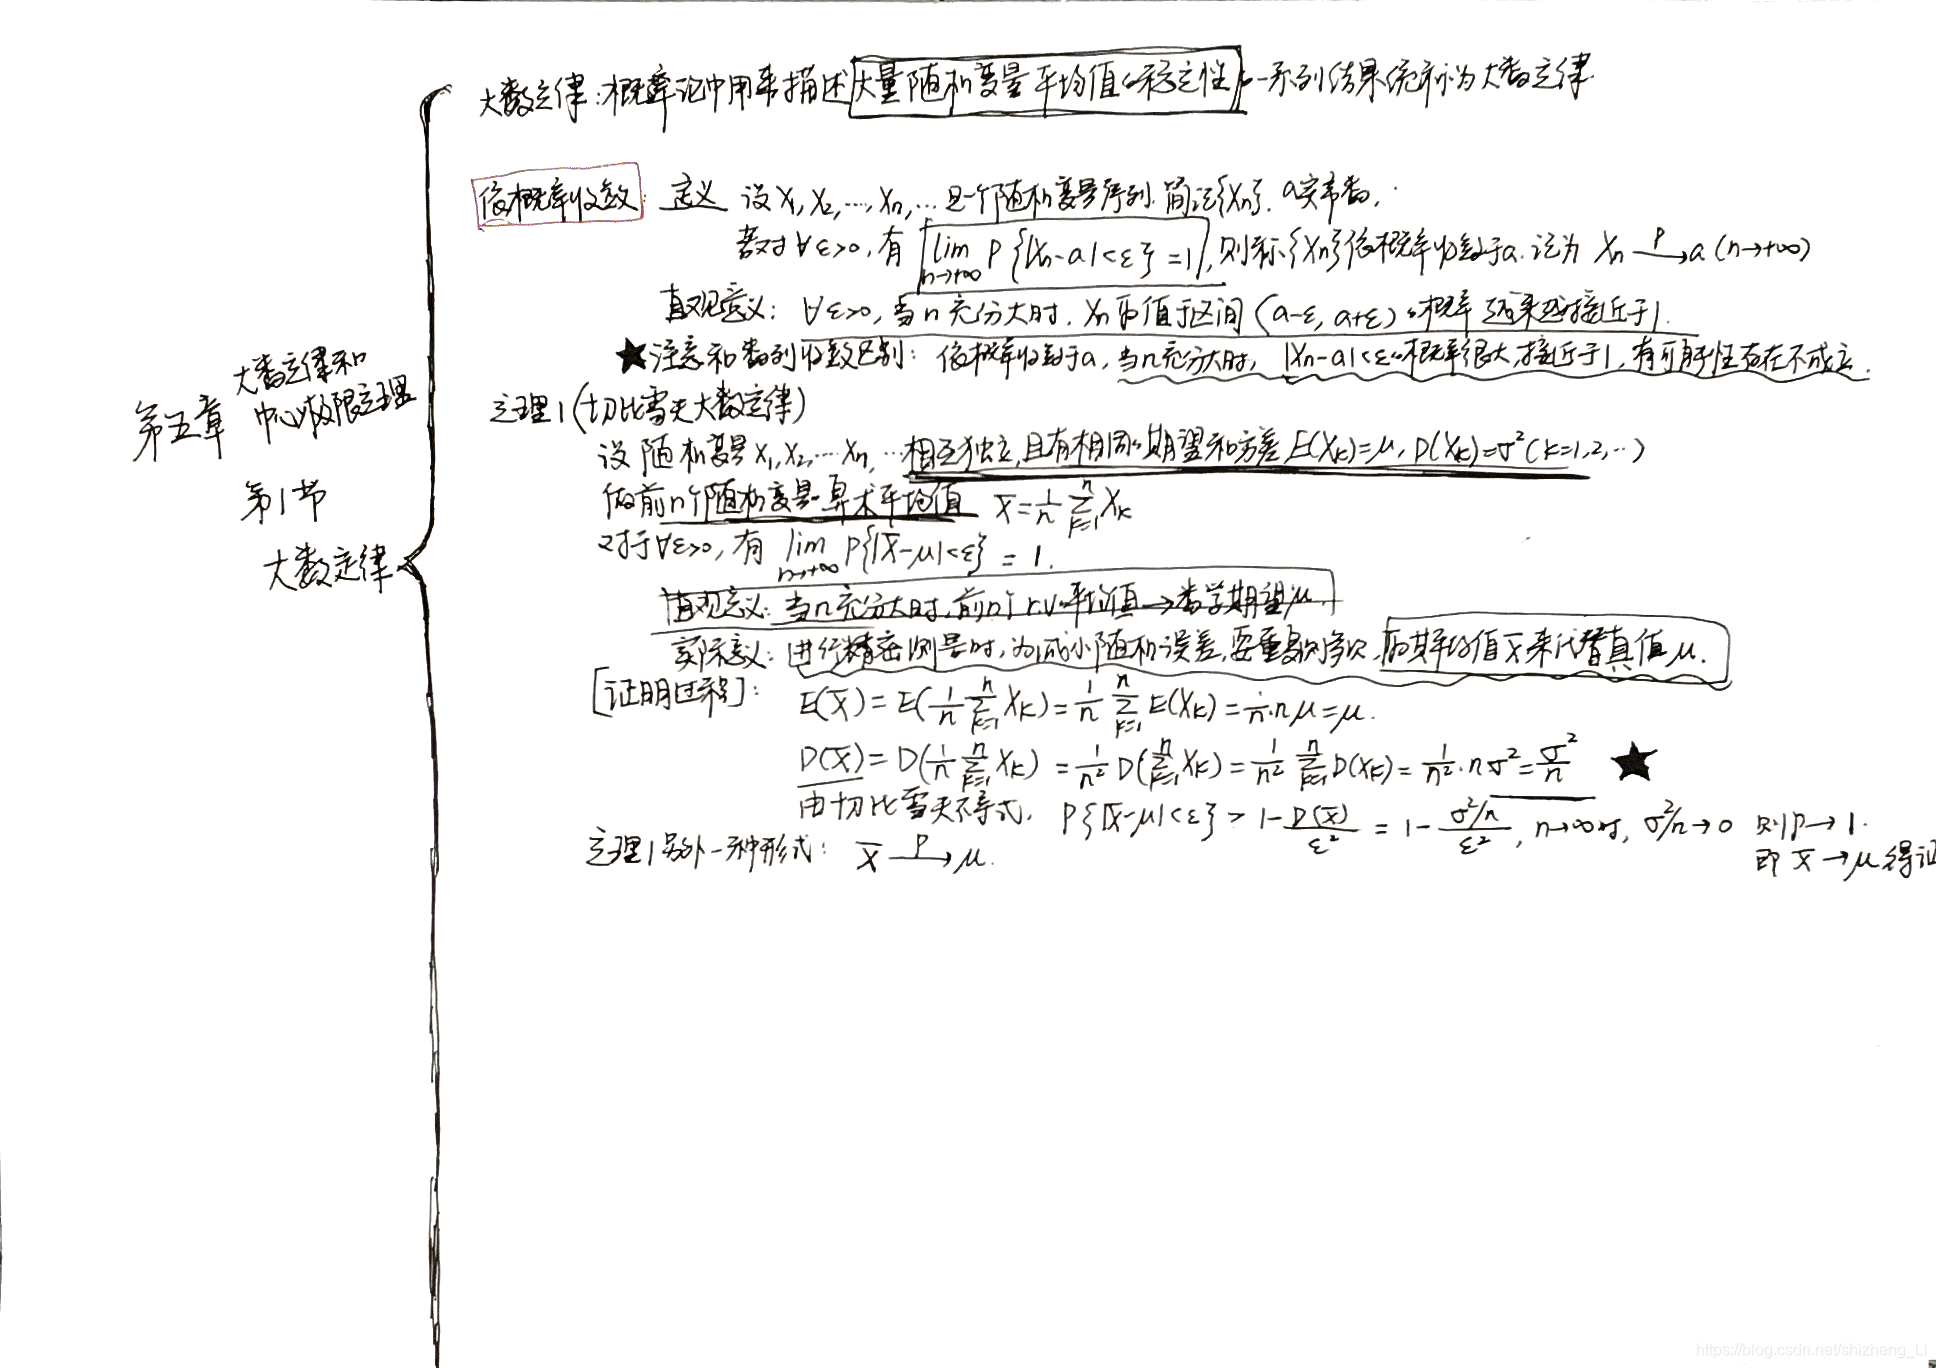 第五章 大数定律和
中心极限定理
第1节
大数定律
大数定律:概率论中用来描述大量随机变量平均值的稳定性的一系列结果统称为大数定律.
依概率收敛: 定义 设X₁,X₂,…,Xn,…是一个随机变量序列.简记{Xn}. a实常数,
若对∀ε>0,有 lim n→+∞ P{|Xn-a|<ε}=1,则称{Xn}依概率收敛于a.记为 Xn —P→ a (n→+∞)
直观意义: ∀ε>0,当n充分大时.Xn取值于区间(a-ε,a+ε)的概率越来越接近于1.
★注意和数列收敛区别: 依概率收敛于a,当n充分大时, |Xn-a|<ε的概率很大,接近于1,有可能性存在不成立.
定理1(切比雪夫大数定律)
设随机变量X₁,X₂,…Xn,…相互独立,且有相同的期望和方差,E(Xk)=μ,D(Xk)=σ²(k=1,2,…)
做前n个随机变量的算术平均值 X̄=1/n Σ(k=1→n) Xk
对于∀ε>0,有 lim n→+∞ P{|X̄-μ|<ε} = 1.
直观意义:当n充分大时,前n个r.v的平均值→数学期望μ.
实际意义: 进行精密测量时,为减小随机误差,要重复测多次,用其平均值X̄来代替真值μ.
[证明过程]: E(X̄)=E(1/n Σ(k=1→n) Xk)=1/n Σ(k=1→n) E(Xk)=1/n·nμ=μ.
D(X̄)=D(1/n Σ(k=1→n) Xk)=1/n² D(Σ(k=1→n) Xk)=1/n² Σ(k=1→n) D(Xk)=1/n²·nσ²=σ²/n ★
由切比雪夫不等式, P{|X̄-μ|<ε} > 1-D(X̄)/ε² = 1-(σ²/n)/ε², n→∞时, σ²/n→0 则P→1.
即 X̄→μ 得证
定理1另外一种形式: X̄ —P→ μ.
https://blog.csdn.net/shizheng_Li